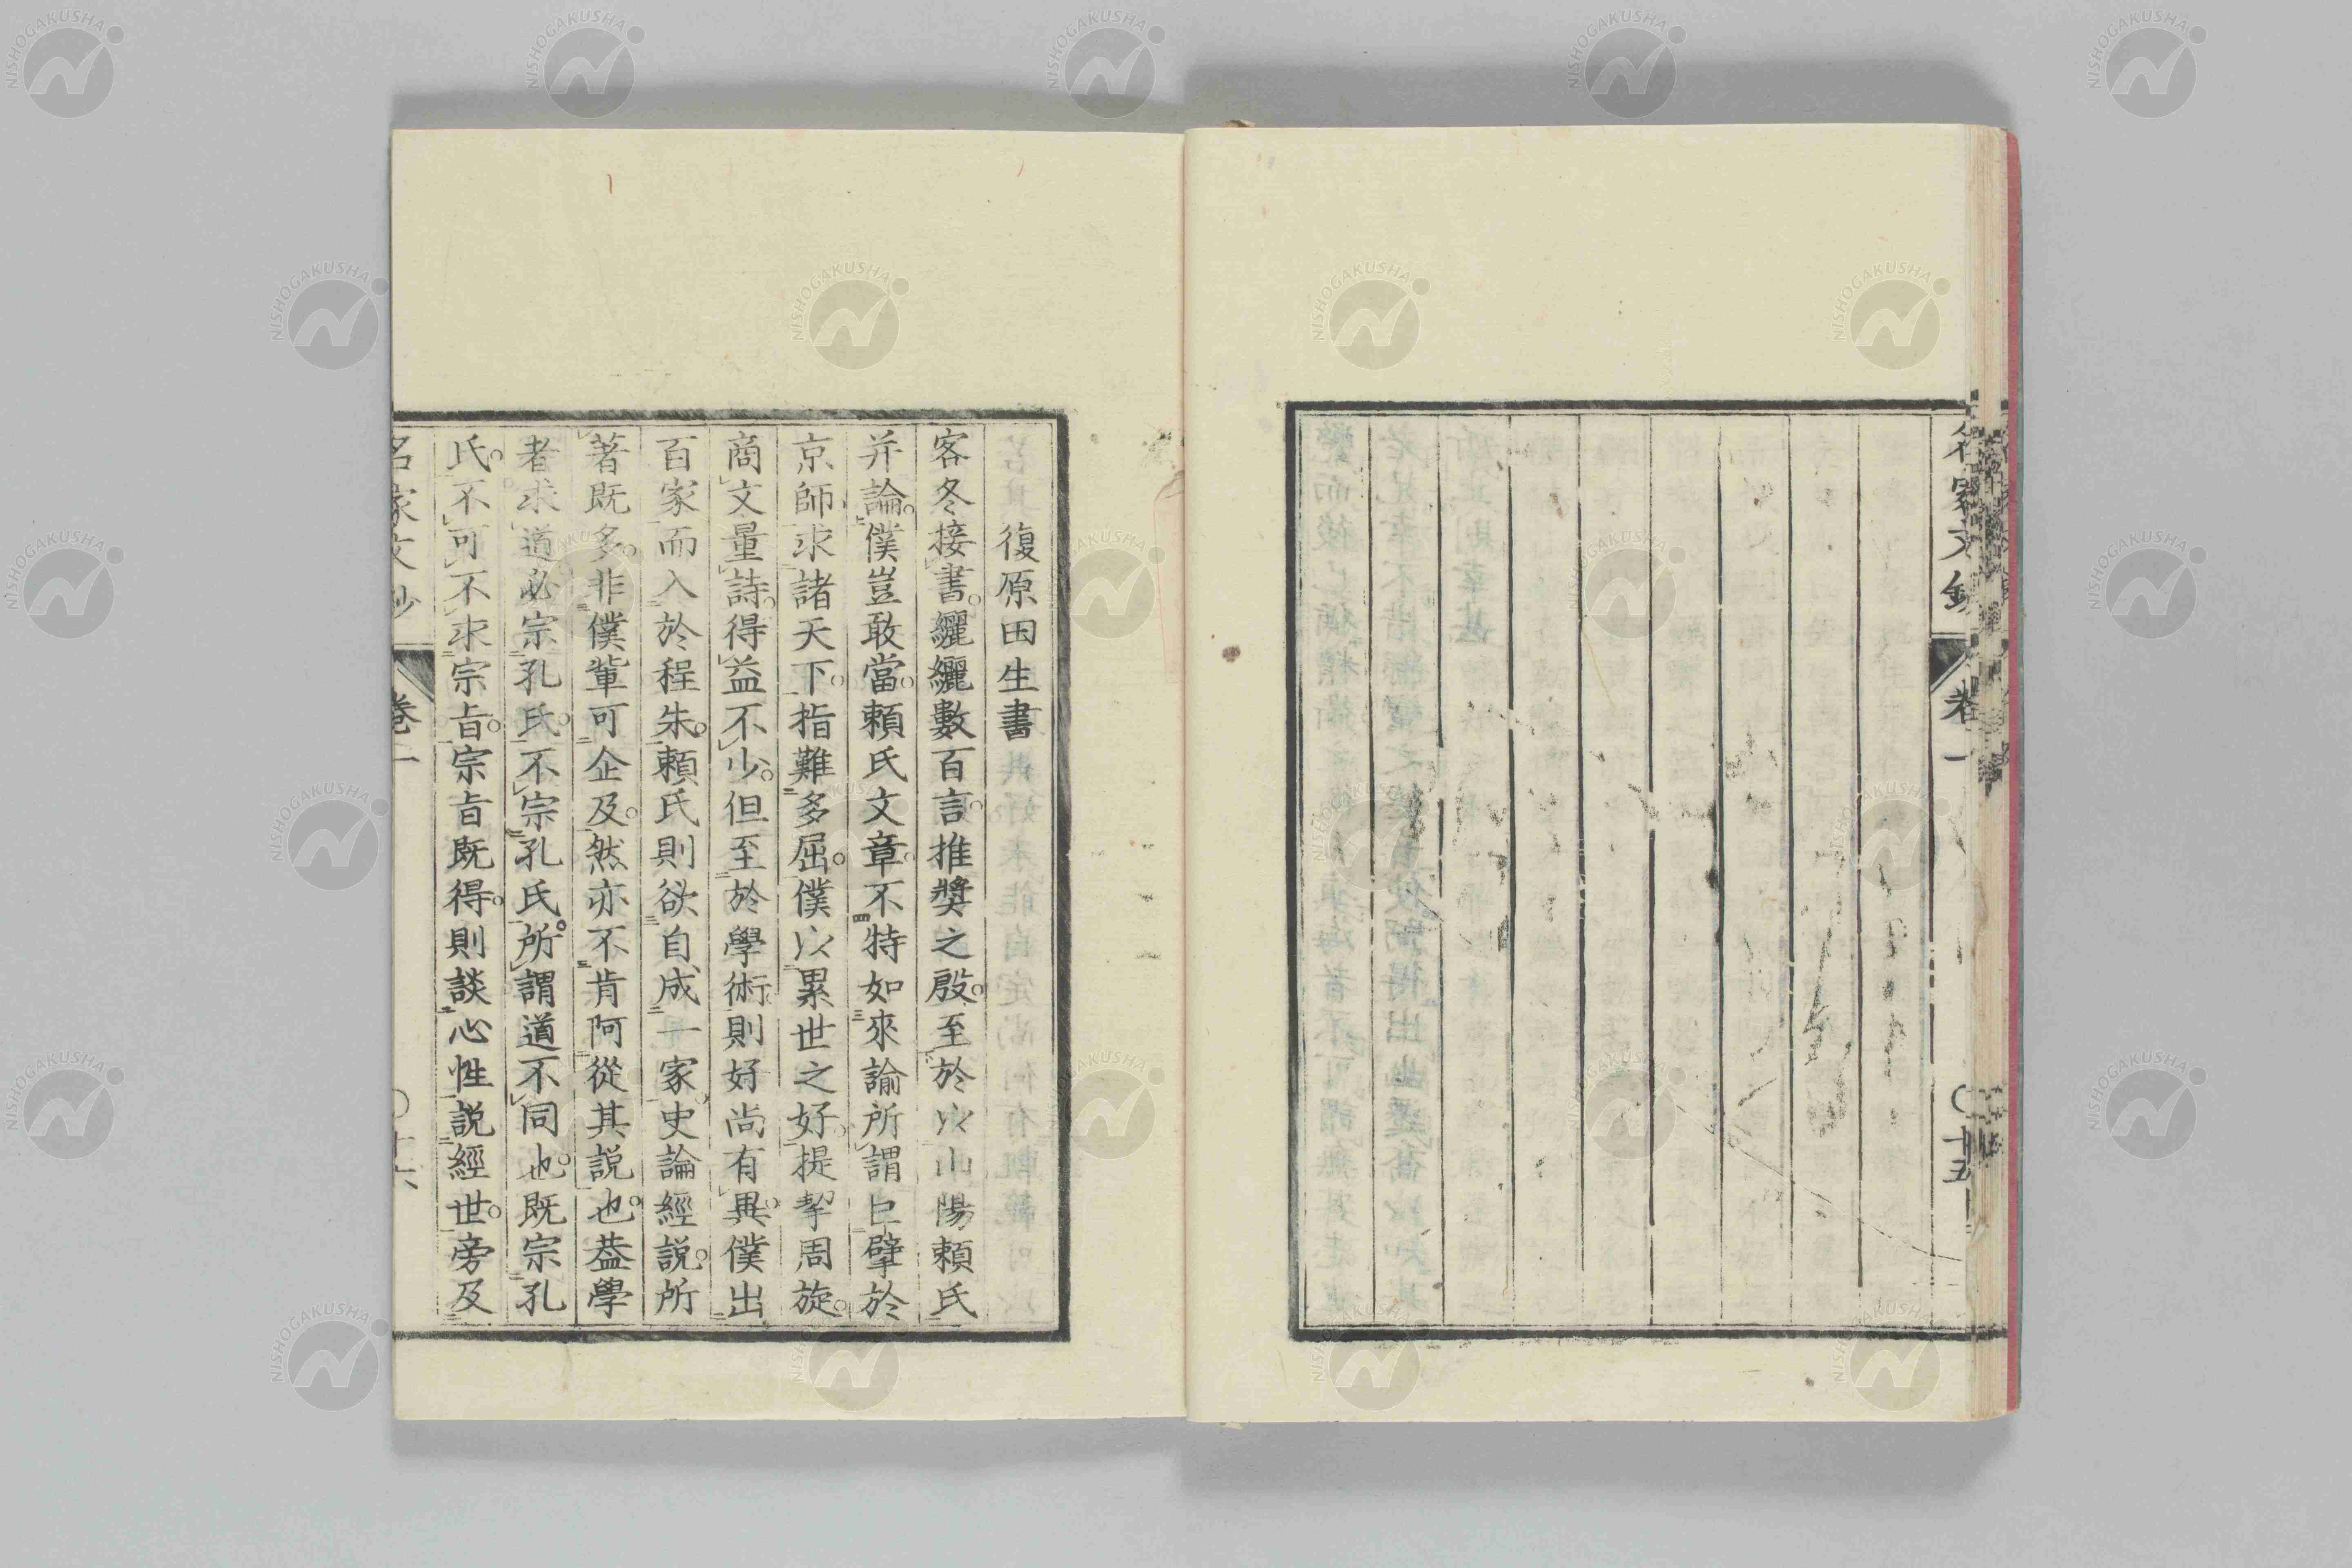 名家文鈔
卷一
〇十五
復原田生書
客冬接書。纚纚數百言。推獎之殷。至於以山陽賴氏
并論。僕豈敢當。賴氏文章。不特如來諭所謂巨擘於
京師。求諸天下。指難多屈。僕以累世之好。提挈周旋。
商文量詩。得益不少。但至於學術。則好尚有異。僕出
百家而入於程朱。賴氏則欲自成一家。史論經說。所
著既多。非僕輩可企及。然亦不肯阿從其説也。蓋學
者求道必宗孔氏。不宗孔氏。所謂道不同也。既宗孔
氏。不可不求宗旨。宗旨既得。則談心性説經世。旁及
名家文鈔
卷一
〇十六
NISHOGAKUSHA